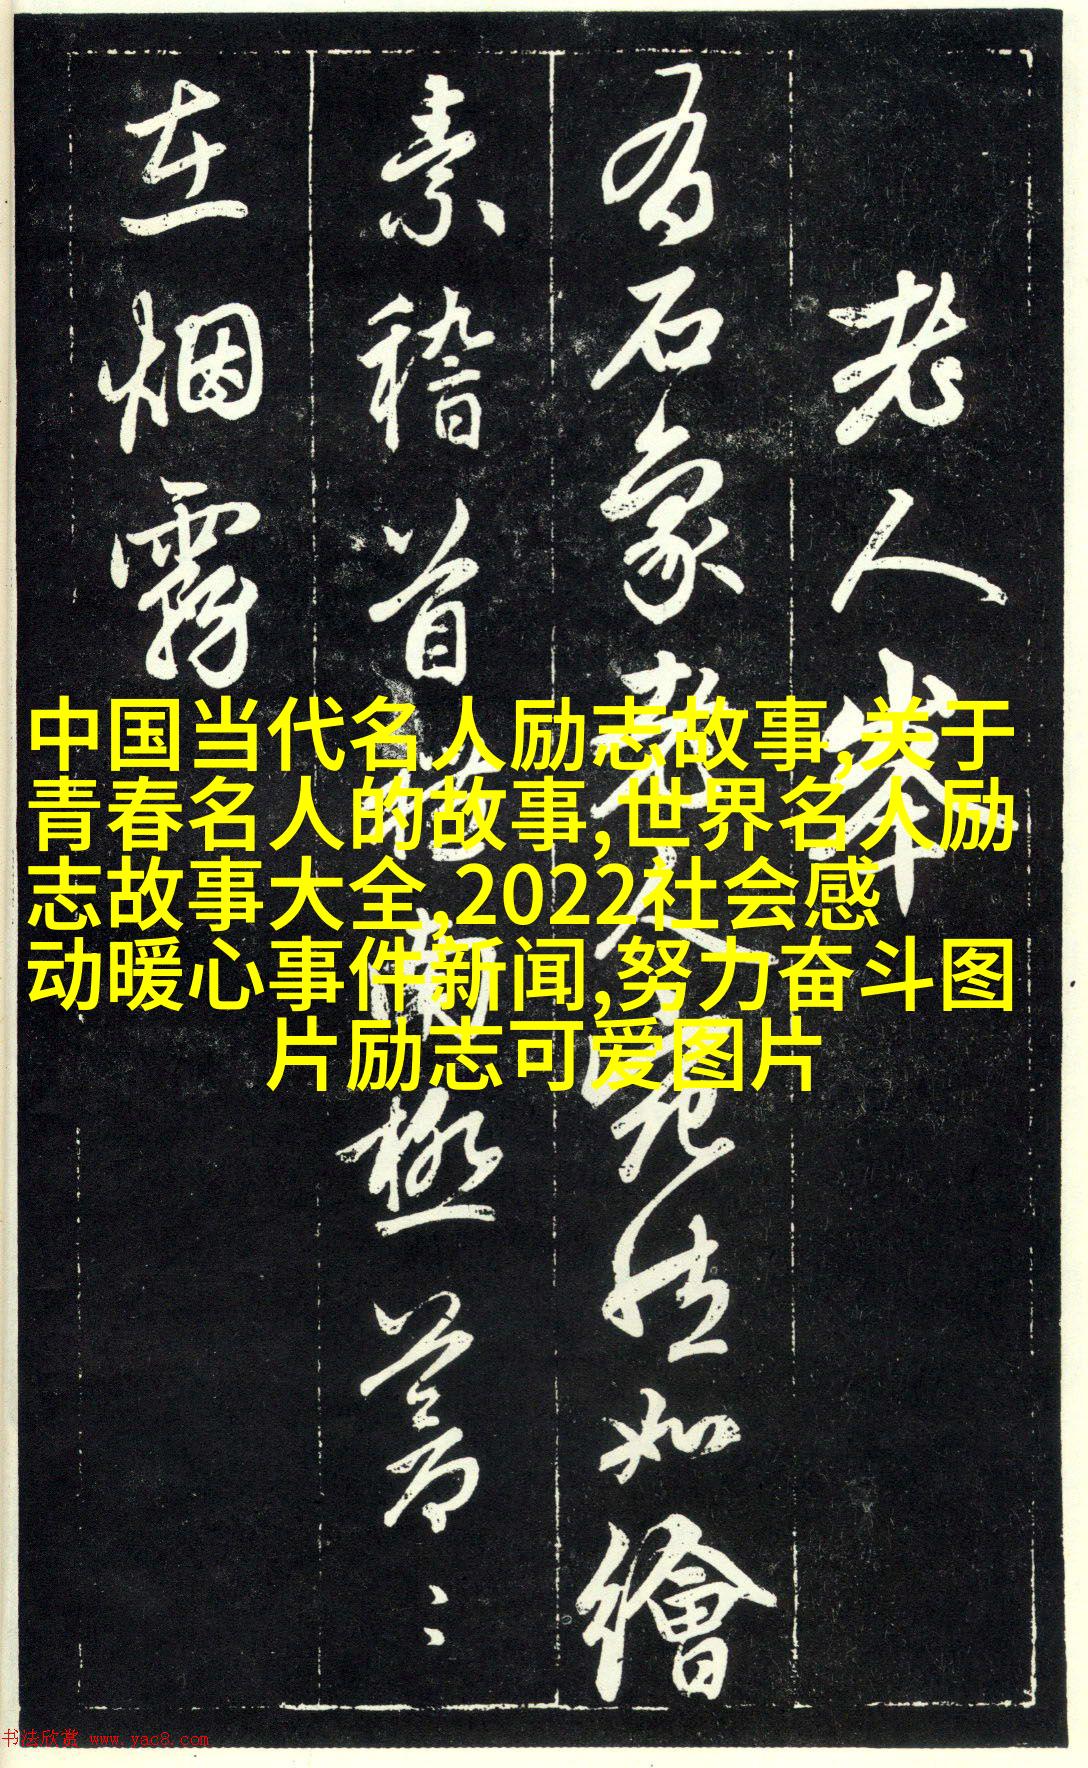 老人峯
有石象老人宛然如繪
素稽首禮南極蒼〻
在烟霧
中国当代名人励志故事,关于
青春名人的故事,世界名人励
志故事大全,2022社会感
动暖心事件新闻,努力奋斗图
片励志可爱图片
书法欣赏 www.yac8.com